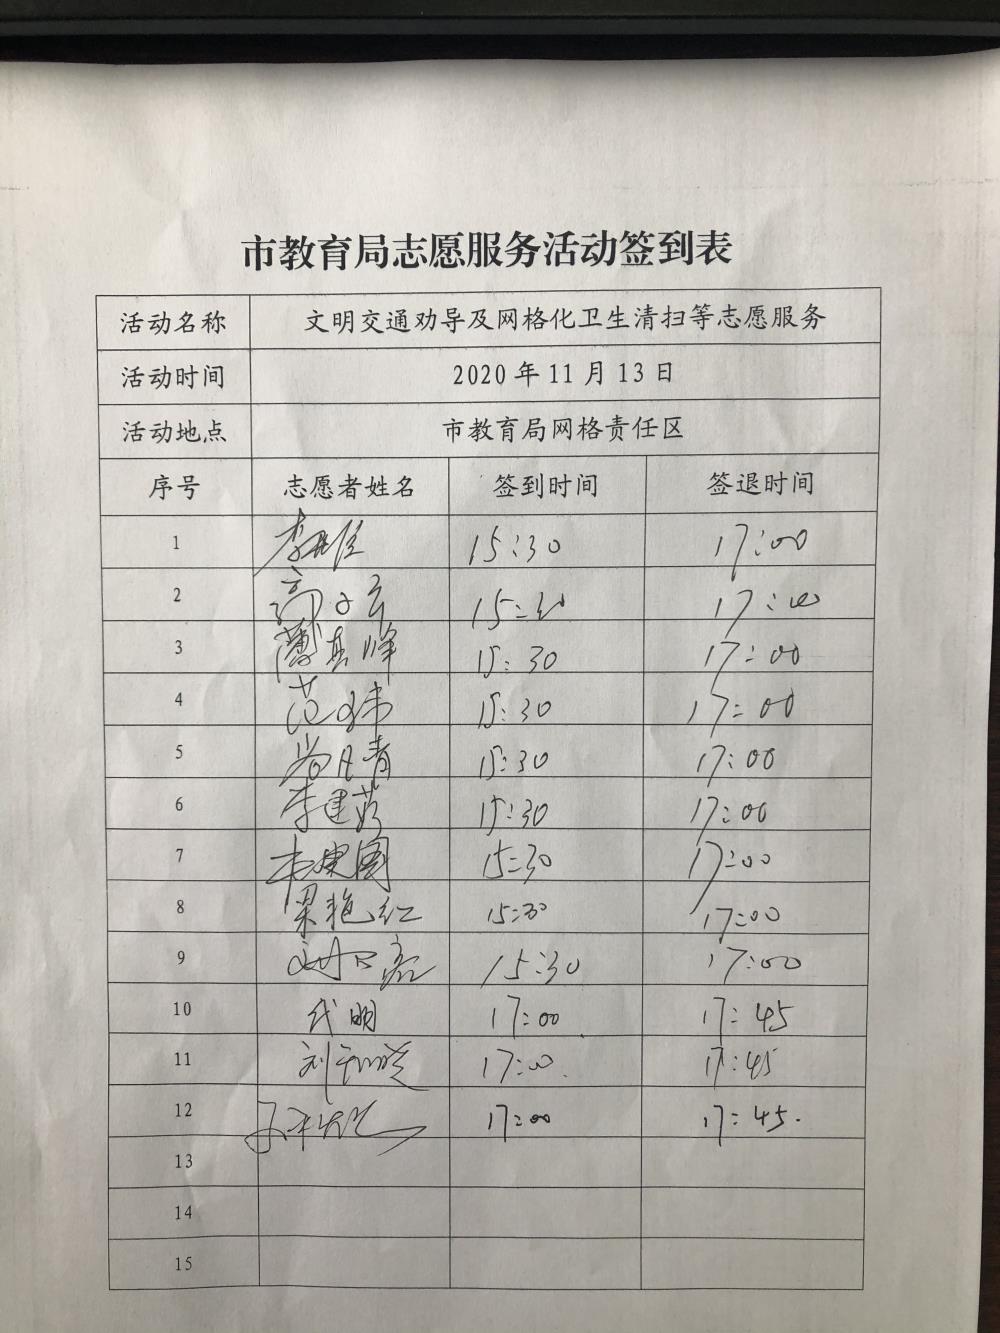 市教育局志愿服务活动签到表
活动名称 文明交通劝导及网格化卫生清扫等志愿服务
活动时间 2020年11月13日
活动地点 市教育局网格责任区
序号 志愿者姓名 签到时间 签退时间
1 15:30 17:00
2 15:30 17:00
3 15:30 17:00
4 范玮 15:30 17:00
5 尚月青 15:30 17:00
6 李建芬 15:30 17:00
7 15:30 17:00
8 梁艳红 15:30 17:00
9 15:30 17:00
10 代明 17:00 17:45
11 17:00 17:45
12 17:00 17:45.
13
14
15